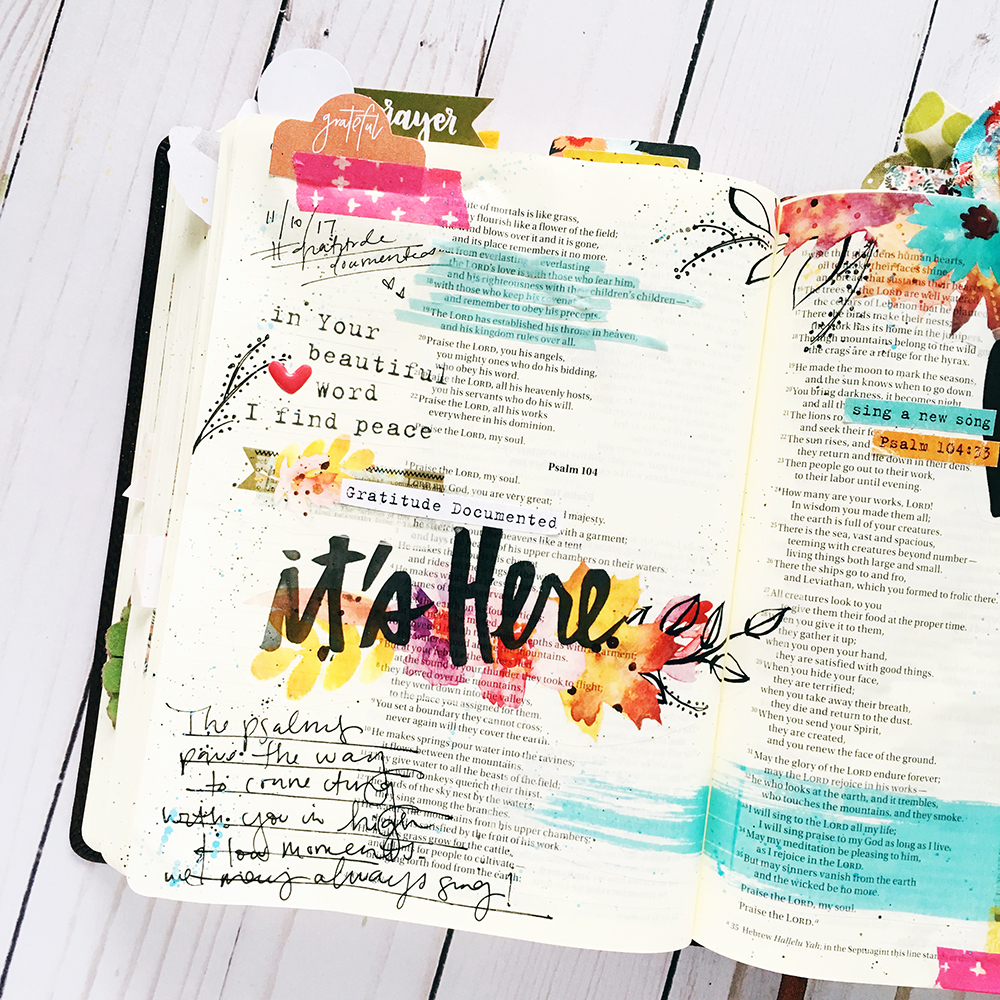 grateful
rayer
11/10/17
#gratitude
documented
in Your
beautiful
Word
I find peace
Gratitude Documented
it's Here.
The psalms
pave the way
to connecting
with you in high
& low moments.
we may always sing!
life of mortals is like grass,
flourish like a flower of the field;
wind blows over it and it is gone,
and its place remembers it no more.
from everlasting everlasting
the LORD's love is with those who fear him,
and his righteousness with the children's children—
18 with those who keep his
and remember to obey his precepts.
19 The LORD has established his throne in heaven,
and his kingdom rules over all.
20 Praise the LORD, you his angels,
you mighty ones who do his bidding,
who obey his word.
the LORD, all his heavenly hosts,
you his servants who do his will.
22 Praise the LORD, all his works
everywhere in his dominion.
Praise the LORD, my soul.
Psalm 104
1 Praise the LORD, my soul.
my God, you are very great;
majesty.
with a garment;
the heavens like a tent
of his upper chambers on their waters.
He makes the
and rides
He makes
as with a garment;
mountains.
But at your
at the sound of your thunder they took to flight;
they flowed over the mountains,
they went down into the valleys,
to the place you assigned for them.
9 You set a boundary they cannot cross;
never again will they cover the earth.
10 He makes springs pour water into the ravines;
it flows between the mountains.
give water to all the beasts of the field;
donkeys quench their thirst.
birds of the sky nest by the waters;
sing among the branches.
the mountains from his upper chambers;
satisfied by the fruit of his work.
grass grow for the cattle,
for people to cultivate—
forth food from the earth:
human hearts,
oil to make their faces shine,
and bread that sustains their hearts
The trees of the LORD are well watered,
the cedars of Lebanon that he planted
17 There the birds make their nests;
the stork has its home in the junipers
18 The high mountains belong to the wild
the crags are a refuge for the hyrax.
19 He made the moon to mark the seasons,
and the sun knows when to go down.
20 You bring darkness, it becomes night,
and all
sing a new song
21 The lions
and seek their
Psalm 104:33
22 The sun rises, and
they return and lie down in their dens.
23 Then people go out to their work,
to their labor until evening.
24 How many are your works, LORD!
In wisdom you made them all;
the earth is full of your creatures.
25 There is the sea, vast and spacious,
teeming with creatures beyond number—
living things both large and small.
26 There the ships go to and fro,
and Leviathan, which you formed to frolic there.
27 All creatures look to you
to give them their food at the proper time.
28 When you give it to them,
they gather it up;
when you open your hand,
they are satisfied with good things.
29 When you hide your face,
they are terrified;
when you take away their breath,
they die and return to the dust.
30 When you send your Spirit,
they are created,
and you renew the face of the ground.
31 May the glory of the LORD endure forever;
may the LORD rejoice in his works—
32 he who looks at the earth, and it trembles,
who touches the mountains, and they smoke.
33 I will sing to the LORD all my life;
I will sing praise to my God as long as I live.
34 May my meditation be pleasing to him,
as I rejoice in the LORD.
35 But may sinners vanish from the earth
and the wicked be no more.
Praise the LORD, my soul.
Praise the LORD.a
a 35 Hebrew Hallelu Yah; in the Septuagint this line